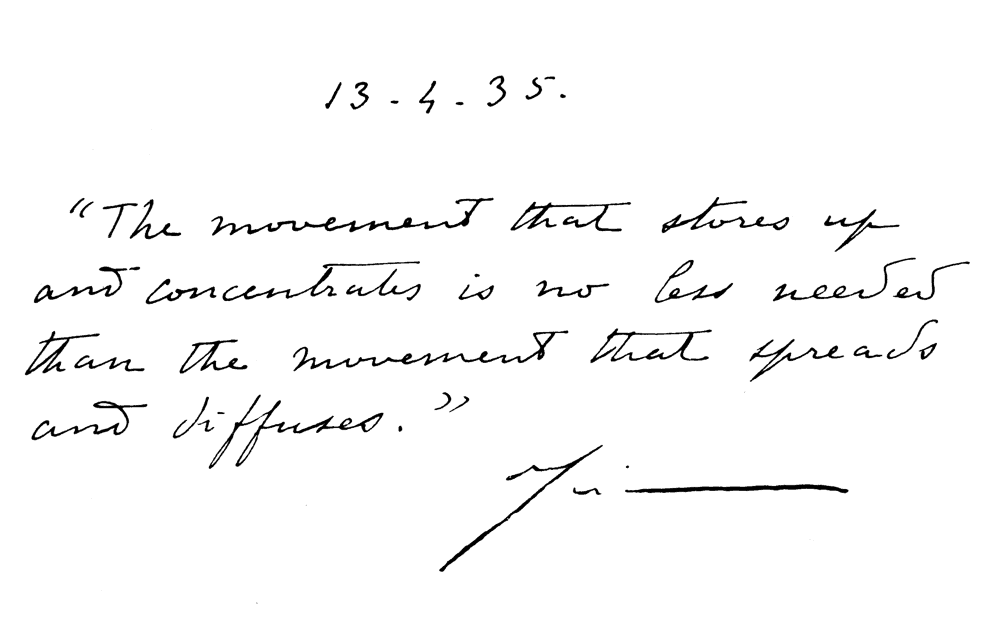 13-4-35.
“The movement that stores up
and concentrates is no less needed
than the movement that spreads
and diffuses.”